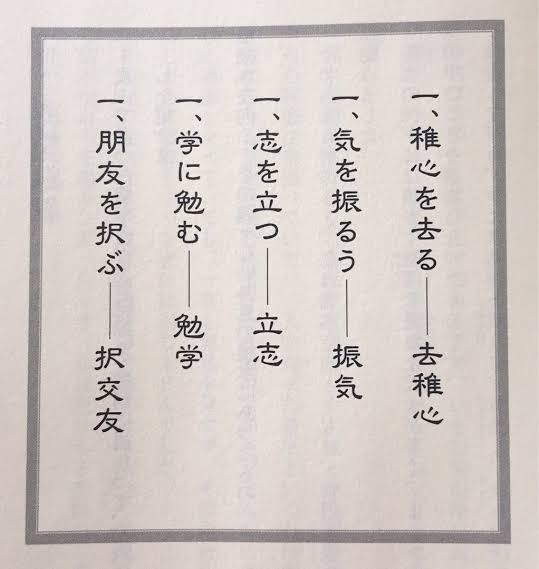 一、稚心を去る――去稚心
一、気を振るう――振気
一、志を立つ――立志
一、学に勉む――勉学
一、朋友を択ぶ――択交友